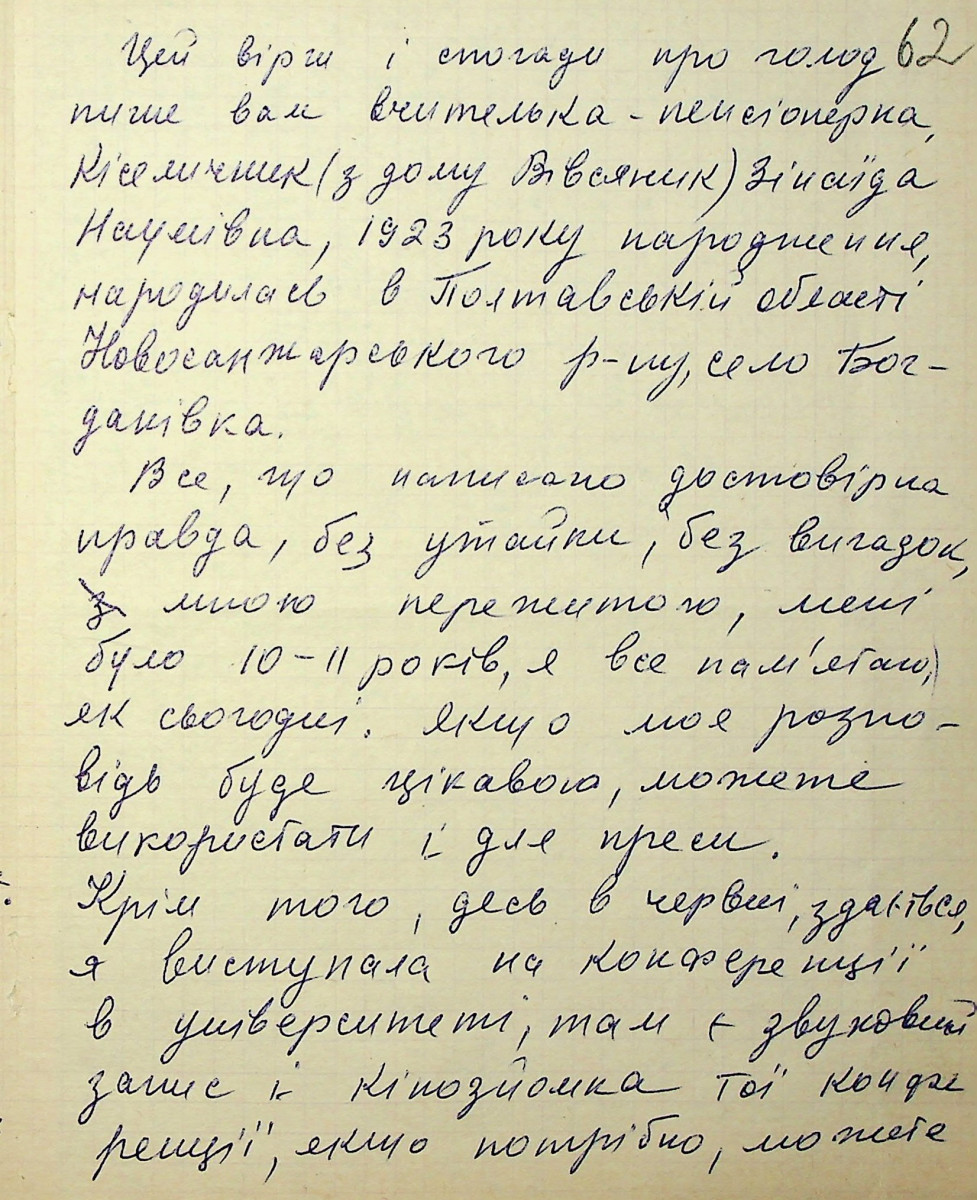 Цей вірш і спогади про голод 62
пише вам вчителька-пенсіонерка,
Кісельчник (з дому Вівсяник) Зінаїда
Наумівна, 1923 року народження,
народилась в Полтавській області
Новосанжарського р-ну, село Бог-
данівка.
Все, що написано достовірна
правда, без утайки, без вигадок,
мною пережитого, мені
було 10-11 років, я все пам'ятаю,
як сьогодні. Якщо моя розпо-
відь буде цікавою, можете
використати і для преси.
Крім того, десь в червні, здається,
я виступала на конференції
в університеті, там є звуковий
запис і кінозйомка тої конфе
ренції, якщо потрібно, можете